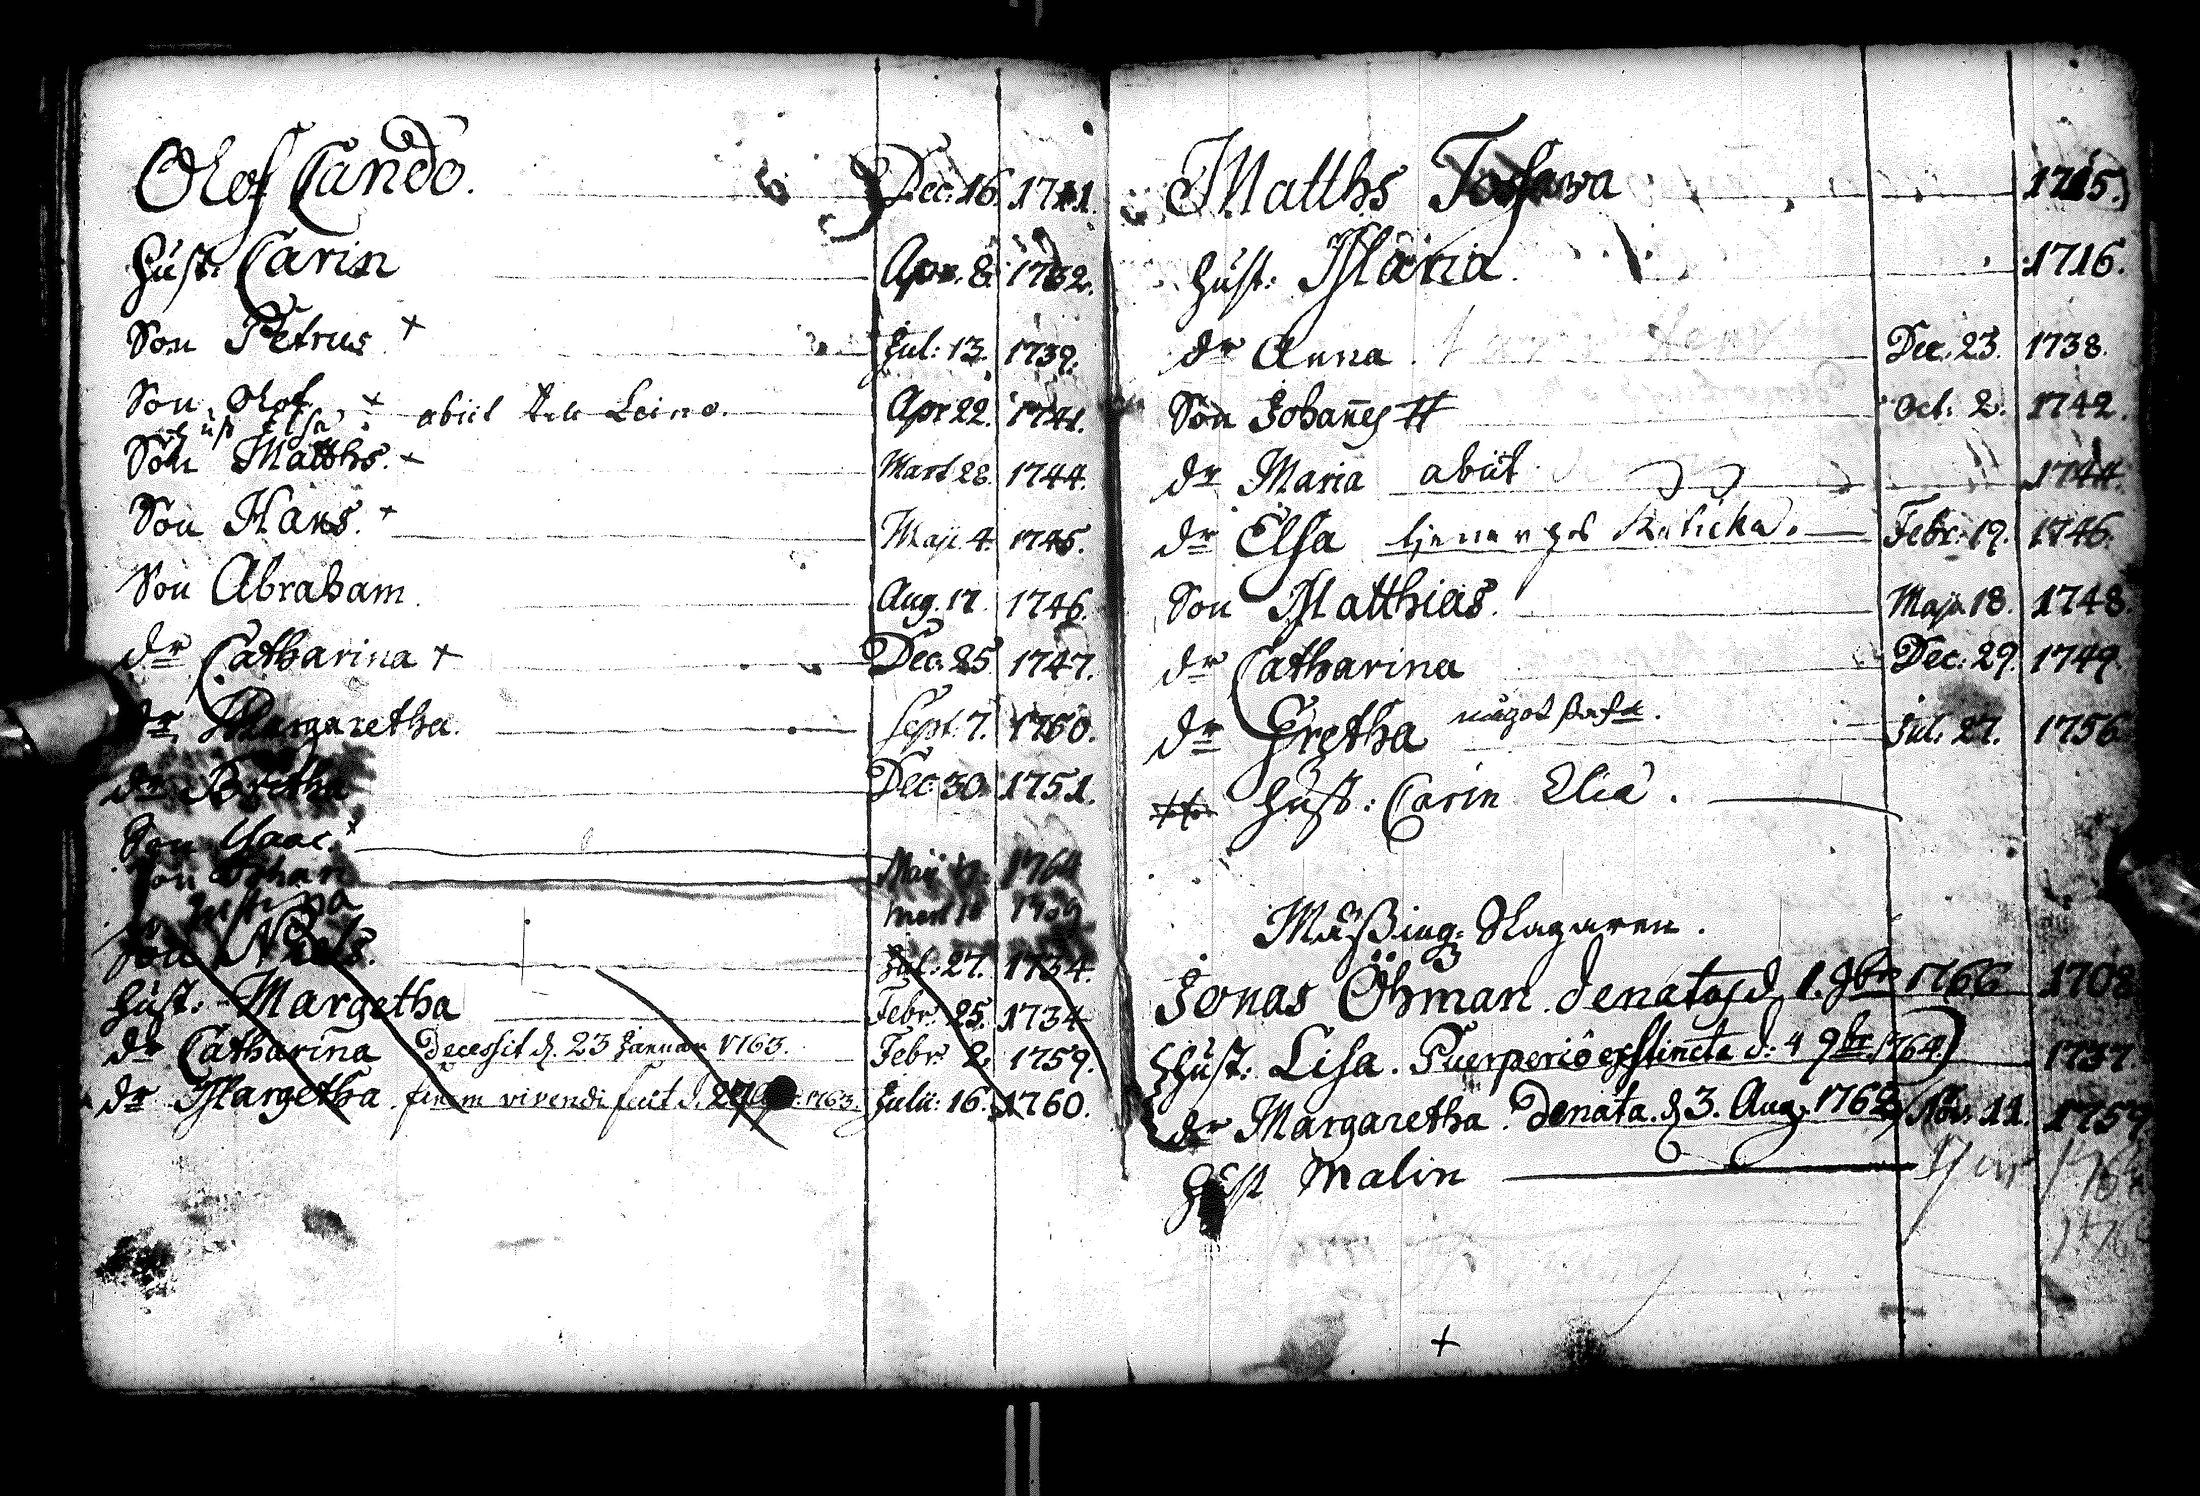 Olof Cando. Dec. 16. 1711.
Hust: Carin Apr. 8. 1732.
Son Petrus + Jul: 13. 1739.
Son Olof + abiit Leino. Apr 22. 1741.
hust Elsa
Son Matths. + Mart 28. 1744.
Son Hans. + Maji 4. 1745.
Son Abraham. Aug. 17. 1746.
dr Catharina + Dec. 25 1747.
dr Margaretha. Sept. 7. 1750.
dr Bretha Dec. 30. 1751.
Son Isaac. + Maii 1764
Son Johan Mart
Son Niels. Jul: 27. 1734.
Hust: Margetha Febr. 25. 1734
dr Catharina Decessit d. 23 Januar 1763. Febr. 2. 1759.
dr Margetha. finem vivendi fecit d. 1763. Julii: 16. 1760.
Matths 1715.
Hust: Maria. 1716.
dr Anna. Dec. 23. 1738.
Son Johannes # Oct. 2. 1742.
dr Maria abiit 1744.
dr Elsa Febr. 19. 1746.
Son Matthias. Maji 18. 1748.
dr Catharina Dec. 29. 1749.
dr Gretha något Jul. 27. 1756
# Hust: Carin Elia.
Måssing: Slagaren.
Jonas Öhman. denatus d. 1. 9br 1766 1708
Hust: Lisa. Puerperio exstincta d: 4 9br. 1764. 1737.
dr Margaretha. Denata. d 3. Aug. 1762 Nov. 11. 1759
Hust Malin
+